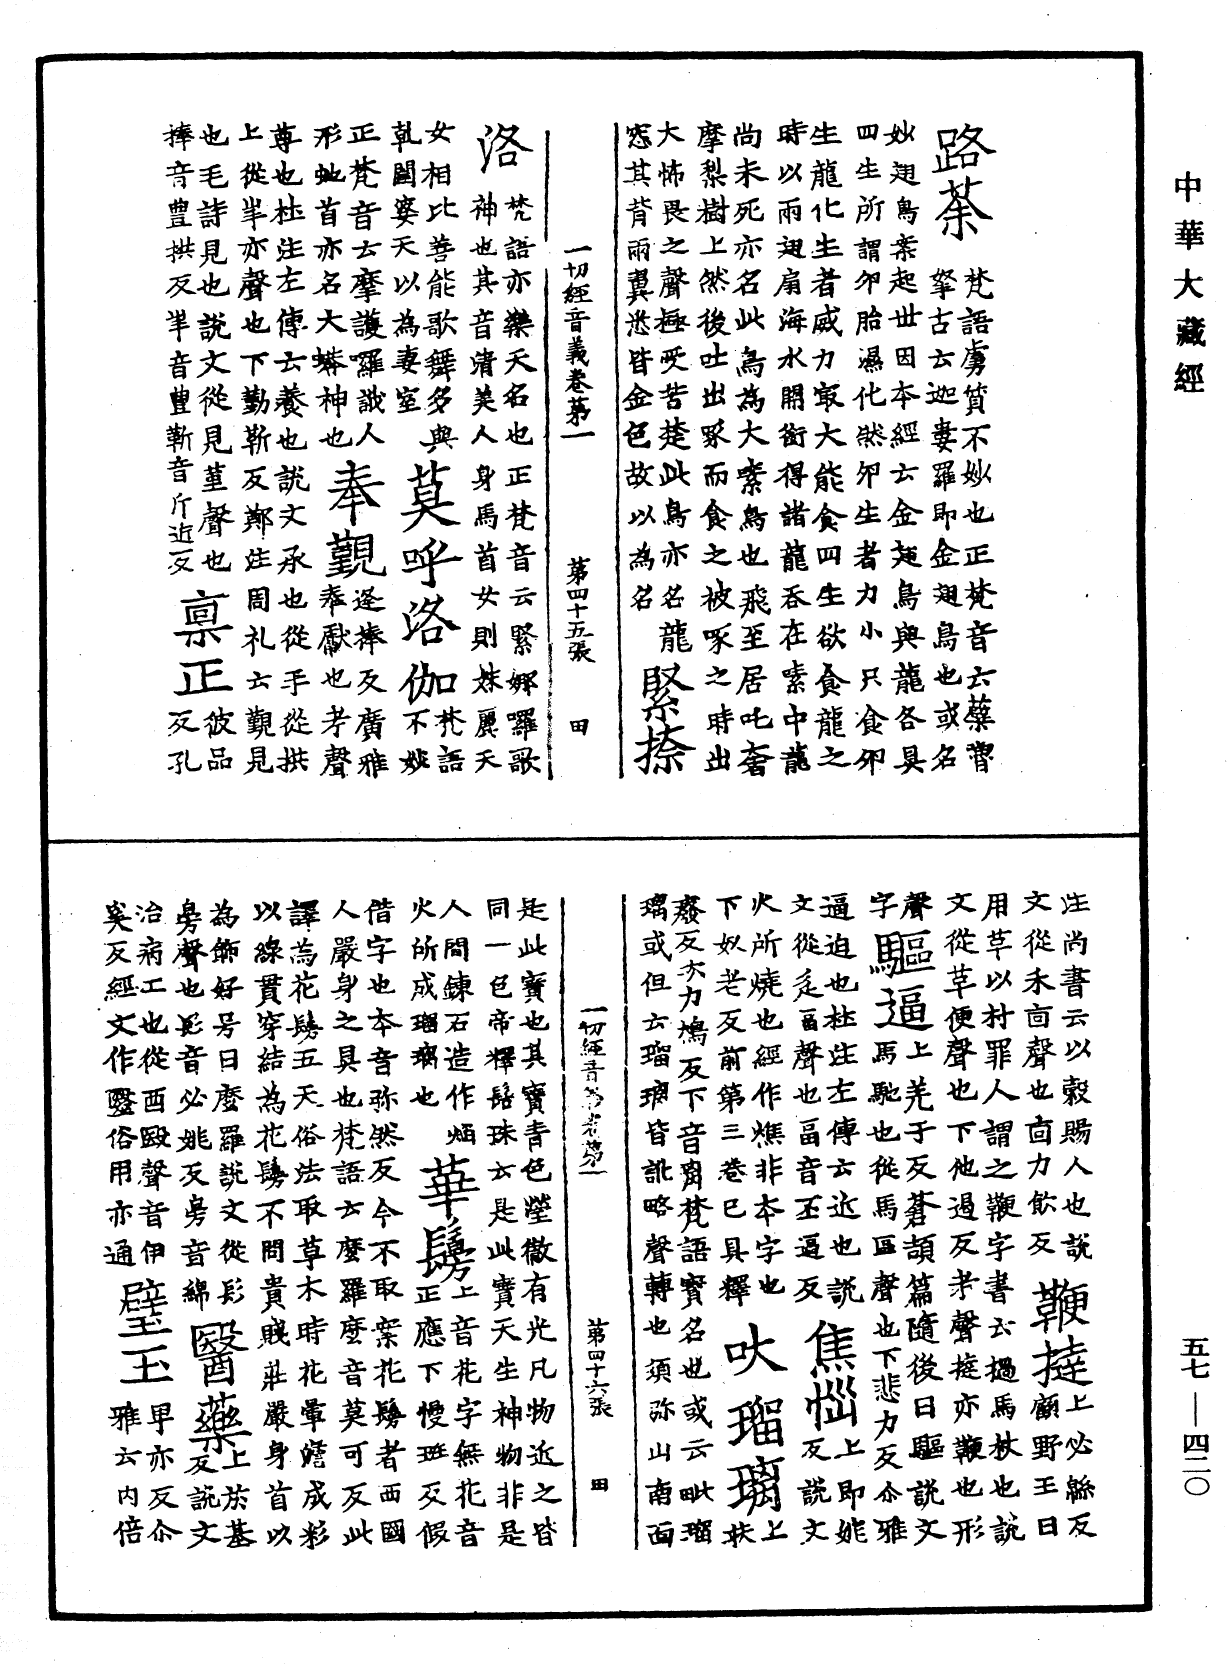 中華大藏經
路荼
梵語虜質不妙也正梵音云蘗嚕
拏古云迦婁羅即金翅鳥也或名
妙翅鳥案起世因本經云金翅鳥與龍各具
四生所謂卵胎濕化然卵生者力小只食卵
生龍化生者威力㝡大能食四生欲食龍之
時以兩翅扇海水開銜得諸龍吞在嗉中龍
尚未死亦名此鳥為大嗉鳥也飛至居吒奢
摩梨樹上然後吐出啄而食之被啄之時出
大怖畏之聲極受苦楚此鳥亦名龍
怨其背兩翼悉皆金色故以為名
緊捺
一切經音義卷苐一 苐四十五張 田
洛
梵語亦樂天名也正梵音云緊娜囉歌
神也其音清美人身馬首女則姝麗天
女相比善能歌舞多與
乹闥婆天以為妻室
莫呼洛伽
梵語
不妙
正梵音云摩護囉誐人
形虵首亦名大蟒神也
奉覲
逄捧反廣雅
奉獻也考聲
尊也杜注左傳云養也說文承也從手從拱
上從丰亦聲也下勤靳反鄭注周礼云覲見
也毛詩見也說文從見堇聲也
捧音豊拱反丰音豊靳音斤近反
禀正
彼品
反孔
注尚書云以穀賜人也說
文從禾㐭聲也㐭力飲反
鞭撻
上必緜反
顧野王曰
用革以村罪人謂之鞭字書云檛馬杖也說
文從革便聲也下他過反考聲撻亦鞭也形
聲
字
驅逼
上羌于反蒼頡篇隨後曰驅說文
馬馳也從馬區聲也下悲力反尒雅
逼迫也杜注左傳云近也說
文從辵畐聲也畐音丕逼反
焦惱
上即姚
反說文
火所燒也經作燋非本字也
下奴老反前第三巻已具釋
吠瑠璃
上
扶
癈反吠力鳩反下音离梵語寶名也或云毗瑠
璃或但云瑠璃皆訛略聲轉也須弥山南面
一切經音義卷苐一 苐四十六張 田
是此寶也其寶青色瑩徹有光凡物近之皆
同一色帝釋髻珠云是此寶天生神物非是
人間鍊石造作焰
火所成瑠璃也
華鬘
上音花字無花音
正應下慢班反假
借字也本音弥然反今不取案花鬘者西國
人嚴身之具也梵語云麽羅麽音莫可反此
譯為花鬘五天俗法取草木時花暈澹成彩
以線貫穿結為花鬘不問貴賤莊嚴身首以
為飾好号曰麽羅說文從髟
臱聲也髟音必姚反臱音綿
醫藥
上於基
反說文
治病工也從酉殹聲音伊
奚反經文作毉俗用亦通
璧玉
甲亦反尒
雅云肉倍
五七—四二〇